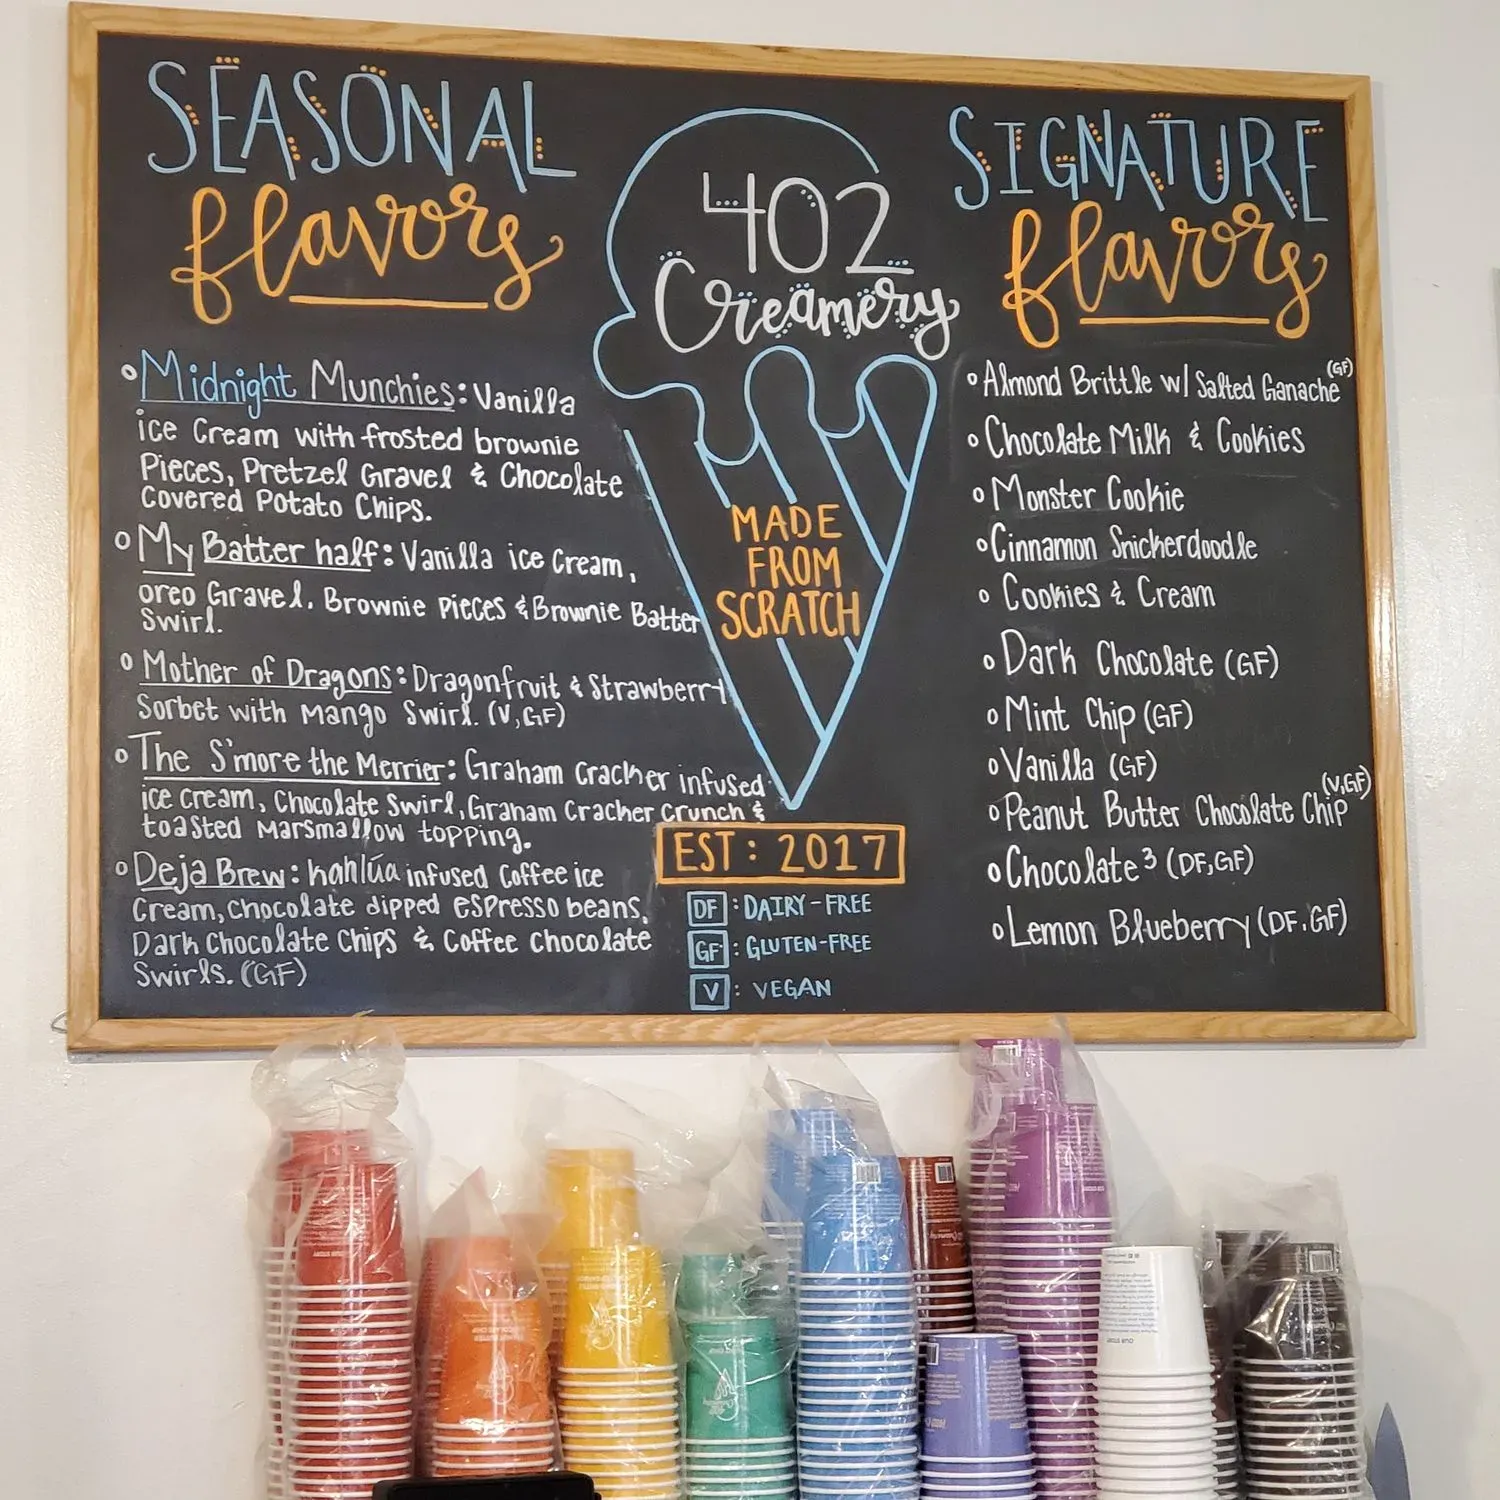 SEASONAL
flavors
Midnight Munchies: Vanilla
ice Cream with frosted brownie
Pieces, Pretzel Gravel & Chocolate
Covered Potato Chips.
My Batter half: Vanilla ice Cream,
oreo Gravel, Brownie Pieces & Brownie Batter
Swirl.
Mother of Dragons: Dragonfruit & Strawberry
Sorbet with Mango Swirl. (V, GF)
The S'more the Merrier: Graham Cracker infused
ice cream, Chocolate Swirl, Graham Cracker Crunch &
toasted Marsmallow topping.
Deja Brew: Kahlúa infused Coffee ice
Cream, Chocolate dipped espresso beans,
Dark Chocolate Chips & Coffee Chocolate
Swirls. (GF)
402
Creamery
MADE
FROM
SCRATCH
EST: 2017
DF: DAIRY-FREE
GF: GLUTEN-FREE
V: VEGAN
SIGNATURE
flavors
Almond Brittle w/ Salted Ganache (GF)
Chocolate Milk & Cookies
Monster Cookie
Cinnamon Snickerdoodle
Cookies & Cream
Dark Chocolate (GF)
Mint Chip (GF)
Vanilla (GF)
Peanut Butter Chocolate Chip (V,GF)
Chocolate³ (DF,GF)
Lemon Blueberry (DF, GF)
OUR STORY
OUR STORY